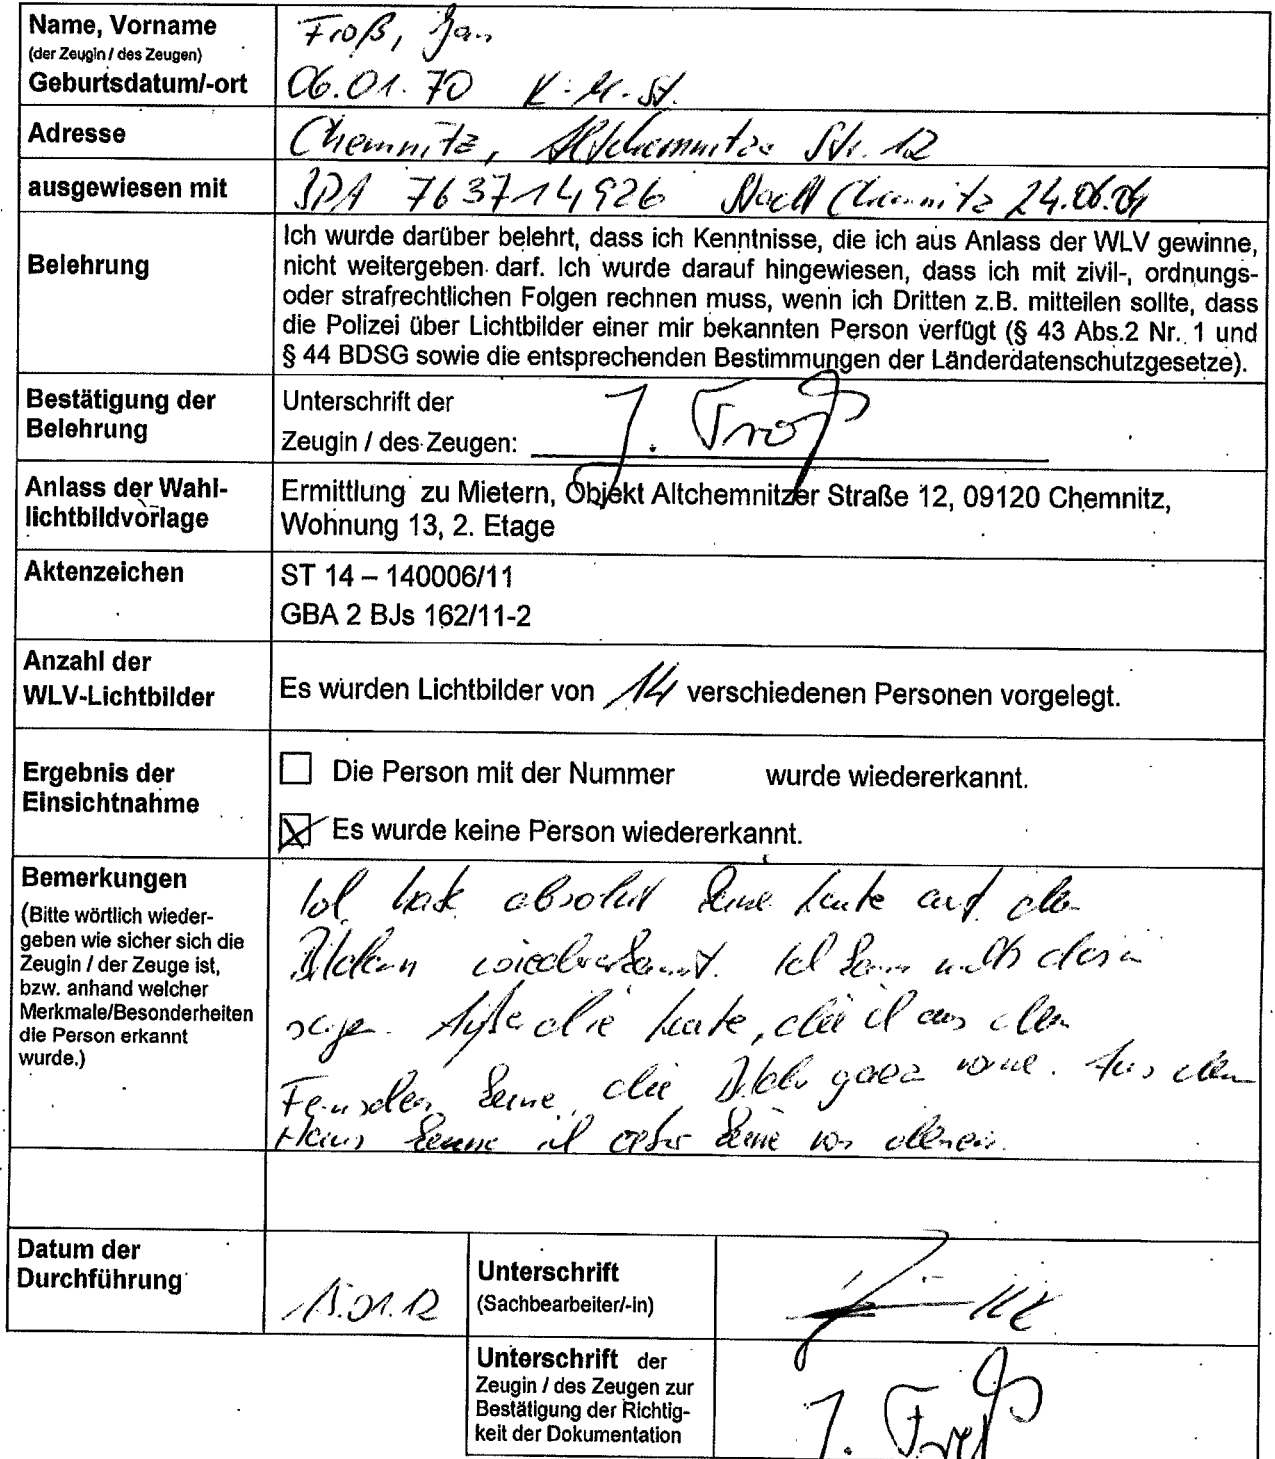 Name, Vorname
(der Zeugin / des Zeugen)
Geburtsdatum/-ort
Froß, Jan
06.01.70 K.-M.-St.
Adresse
Chemnitz, Altchemnitzer Str. 12
ausgewiesen mit
BPA 7637714926 Stadt Chemnitz 24.06.04
Belehrung
Ich wurde darüber belehrt, dass ich Kenntnisse, die ich aus Anlass der WLV gewinne,
nicht weitergeben darf. Ich wurde darauf hingewiesen, dass ich mit zivil-, ordnungs-
oder strafrechtlichen Folgen rechnen muss, wenn ich Dritten z.B. mitteilen sollte, dass
die Polizei über Lichtbilder einer mir bekannten Person verfügt (§ 43 Abs.2 Nr. 1 und
§ 44 BDSG sowie die entsprechenden Bestimmungen der Länderdatenschutzgesetze).
Bestätigung der
Belehrung
Unterschrift der
Zeugin / des Zeugen:
J. Froß
Anlass der Wahl-
lichtbildvorlage
Ermittlung zu Mietern, Objekt Altchemnitzer Straße 12, 09120 Chemnitz,
Wohnung 13, 2. Etage
Aktenzeichen
ST 14 – 140006/11
GBA 2 BJs 162/11-2
Anzahl der
WLV-Lichtbilder
Es wurden Lichtbilder von 14 verschiedenen Personen vorgelegt.
Ergebnis der
Einsichtnahme
Die Person mit der Nummer wurde wiedererkannt.
Es wurde keine Person wiedererkannt.
Bemerkungen
(Bitte wörtlich wieder-
geben wie sicher sich die
Zeugin / der Zeuge ist,
bzw. anhand welcher
Merkmale/Besonderheiten
die Person erkannt
wurde.)
Ich habe absolut keine Leute auf den
Bildern wiedererkannt. Ich kann nichts dazu
sagen. Außer die Leute, die ich aus dem
Fernsehen kenne, die Bilder ganz vorne. Aus dem
Haus kenne ich aber keine von denen.
Datum der
Durchführung
Unterschrift
(Sachbearbeiter/-in)
.01.12
Unterschrift der
Zeugin / des Zeugen zur
Bestätigung der Richtig-
keit der Dokumentation
J. Froß